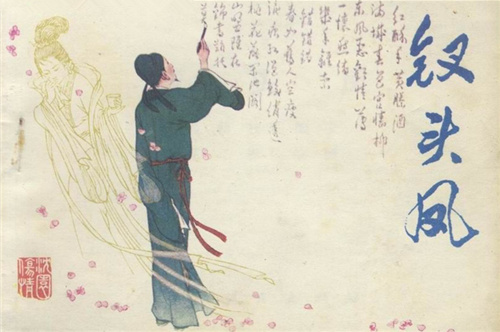 钗头凤
红酥手黄縢酒
满城春色宫墙柳
东风恶欢情薄
一怀愁绪
几年离索
错错错
春如旧人空瘦
泪痕红浥鲛绡透
桃花落闲池阁
山盟虽在
锦书难托
莫
沈園
傷情